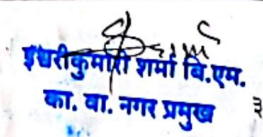 इश्वरीकुमारी शर्मा वि.एम.
का. वा. नगर प्रमुख
३